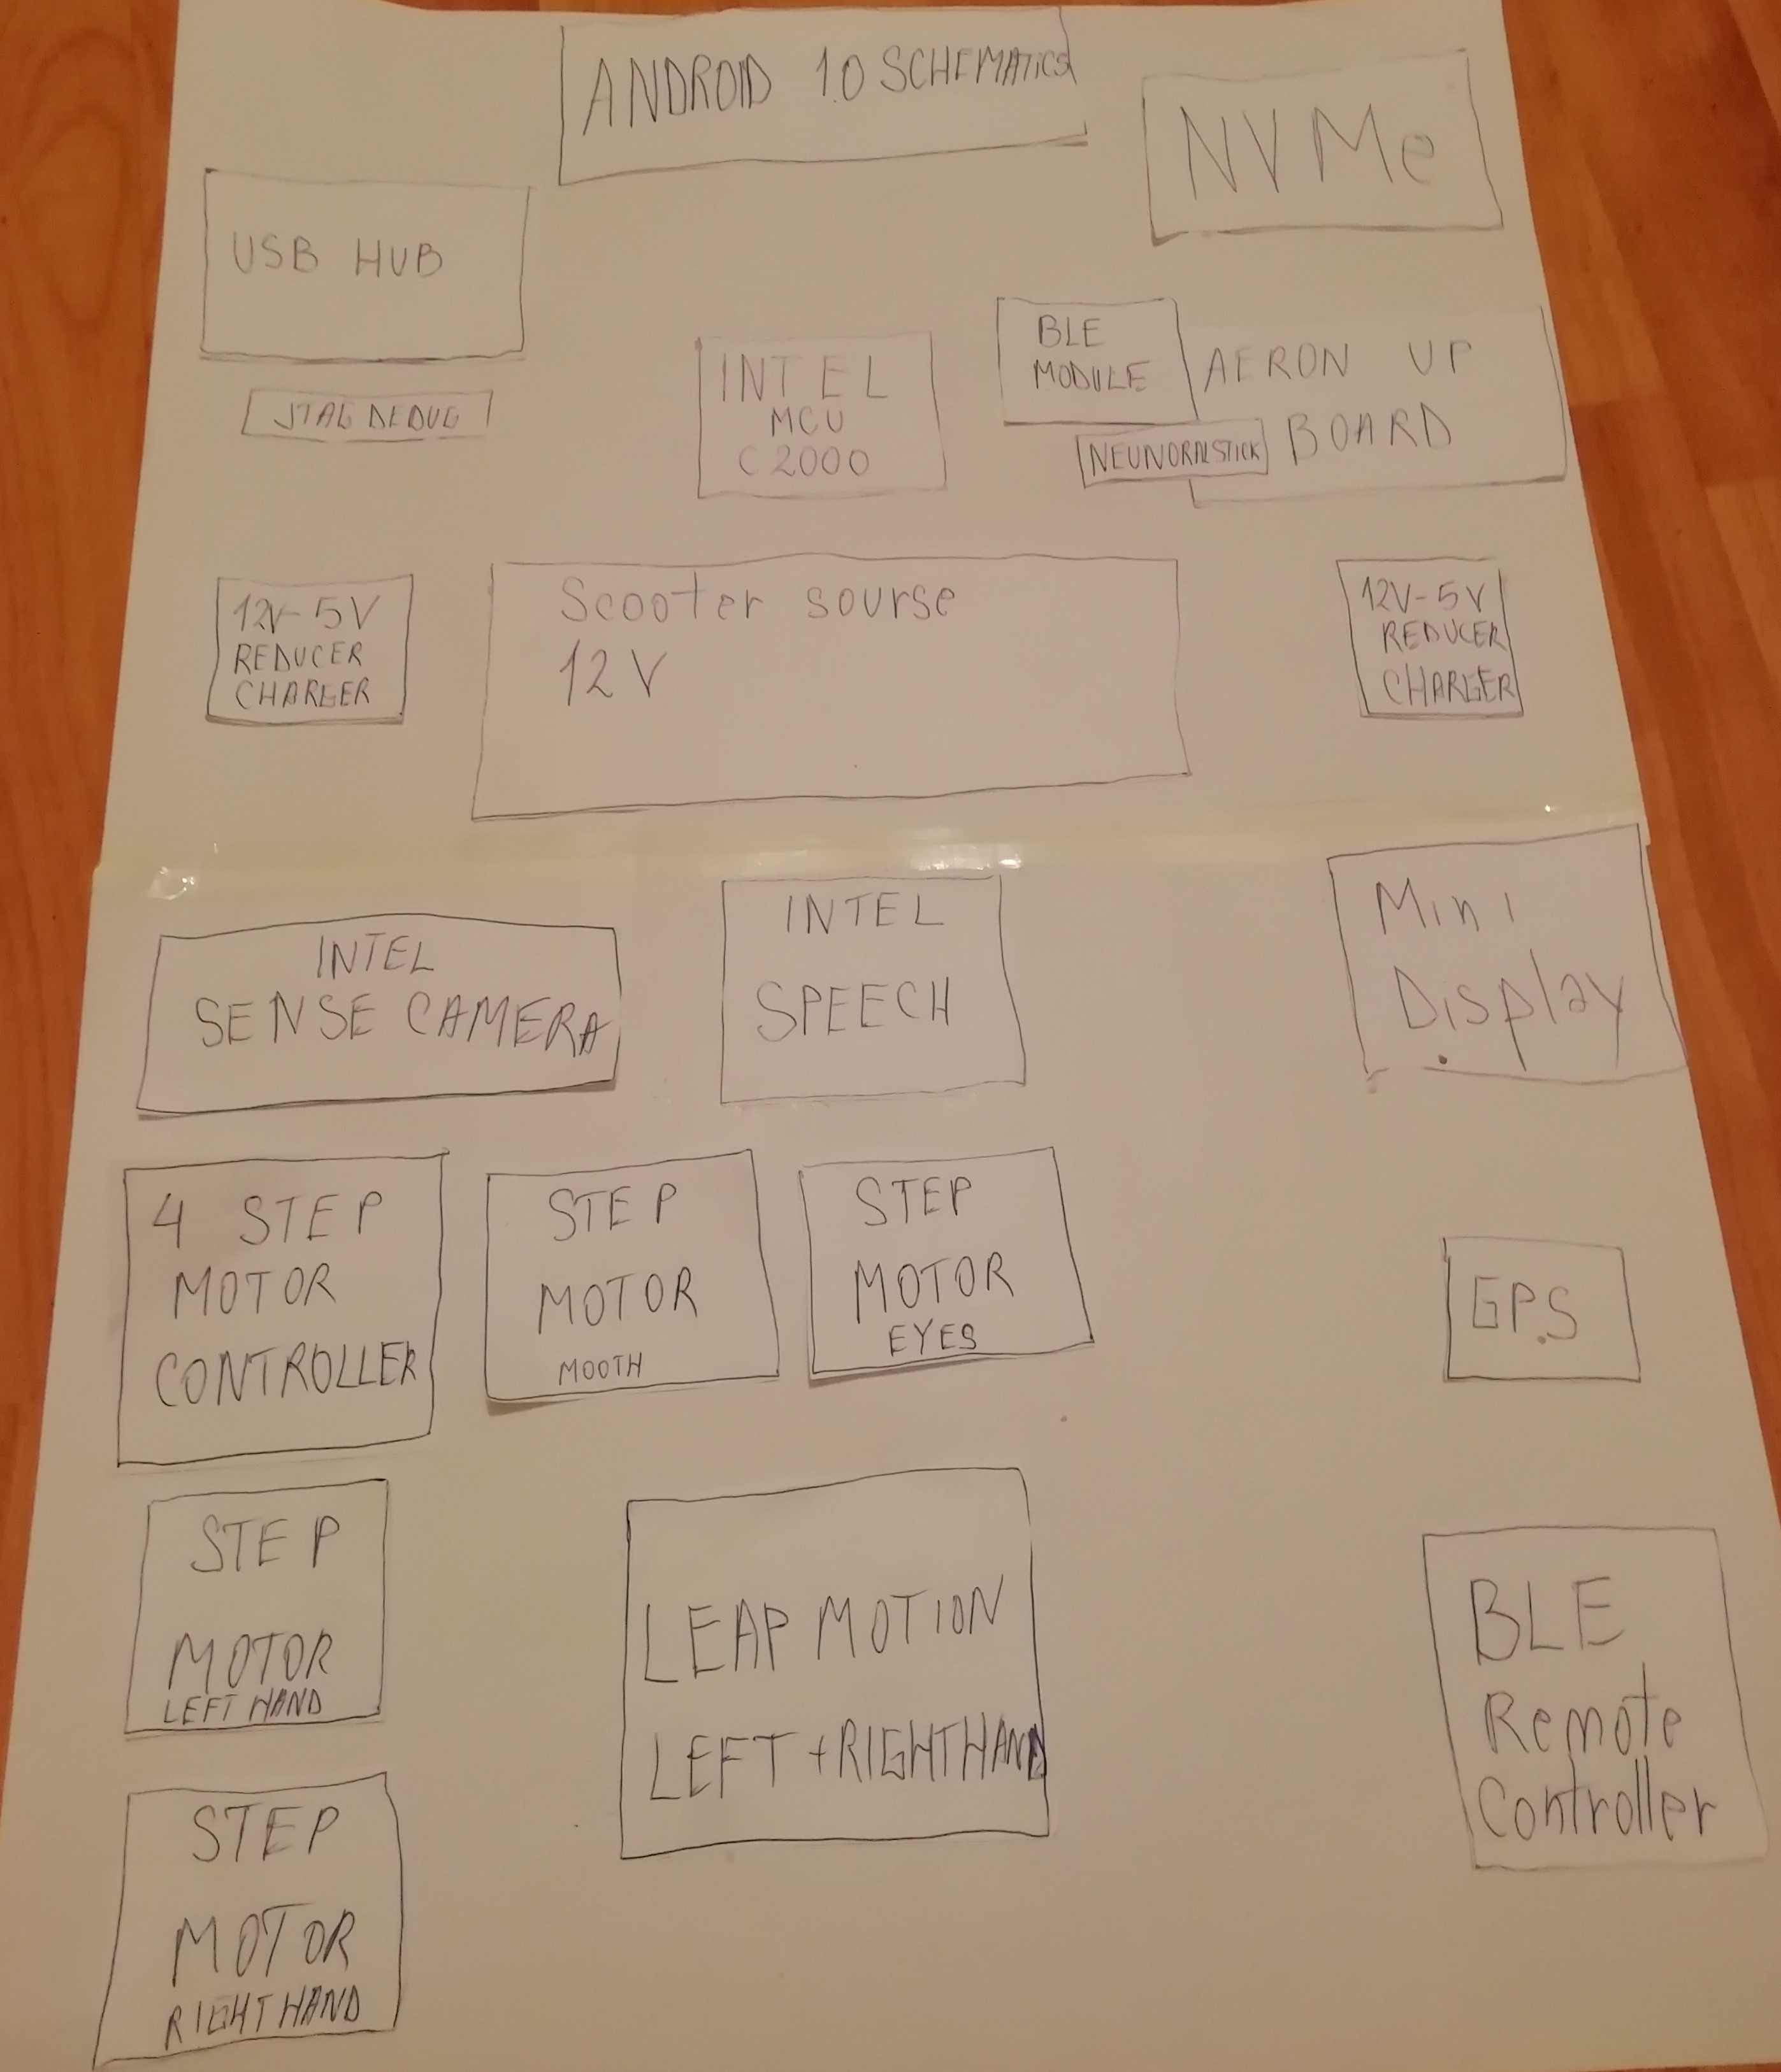 ANDROID 1.0 SCHEMATICS
NVMe
USB HUB
JTAG DEDUG
INTEL
MCU
C2000
BLE
MODULE
AERON UP
BOARD
NEUNORALSTICK
12V-5V
REDUCER
CHARGER
Scooter sourse
12V
12V-5V
REDUCER
CHARGER
INTEL
SENSE CAMERA
INTEL
SPEECH
Mini
Display
4 STEP
MOTOR
CONTROLLER
STEP
MOTOR
MOOTH
STEP
MOTOR
EYES
GPS
STEP
MOTOR
LEFT HAND
LEAP MOTION
LEFT + RIGHT HAND
BLE
Remote
Controller
STEP
MOTOR
RIGHT HAND